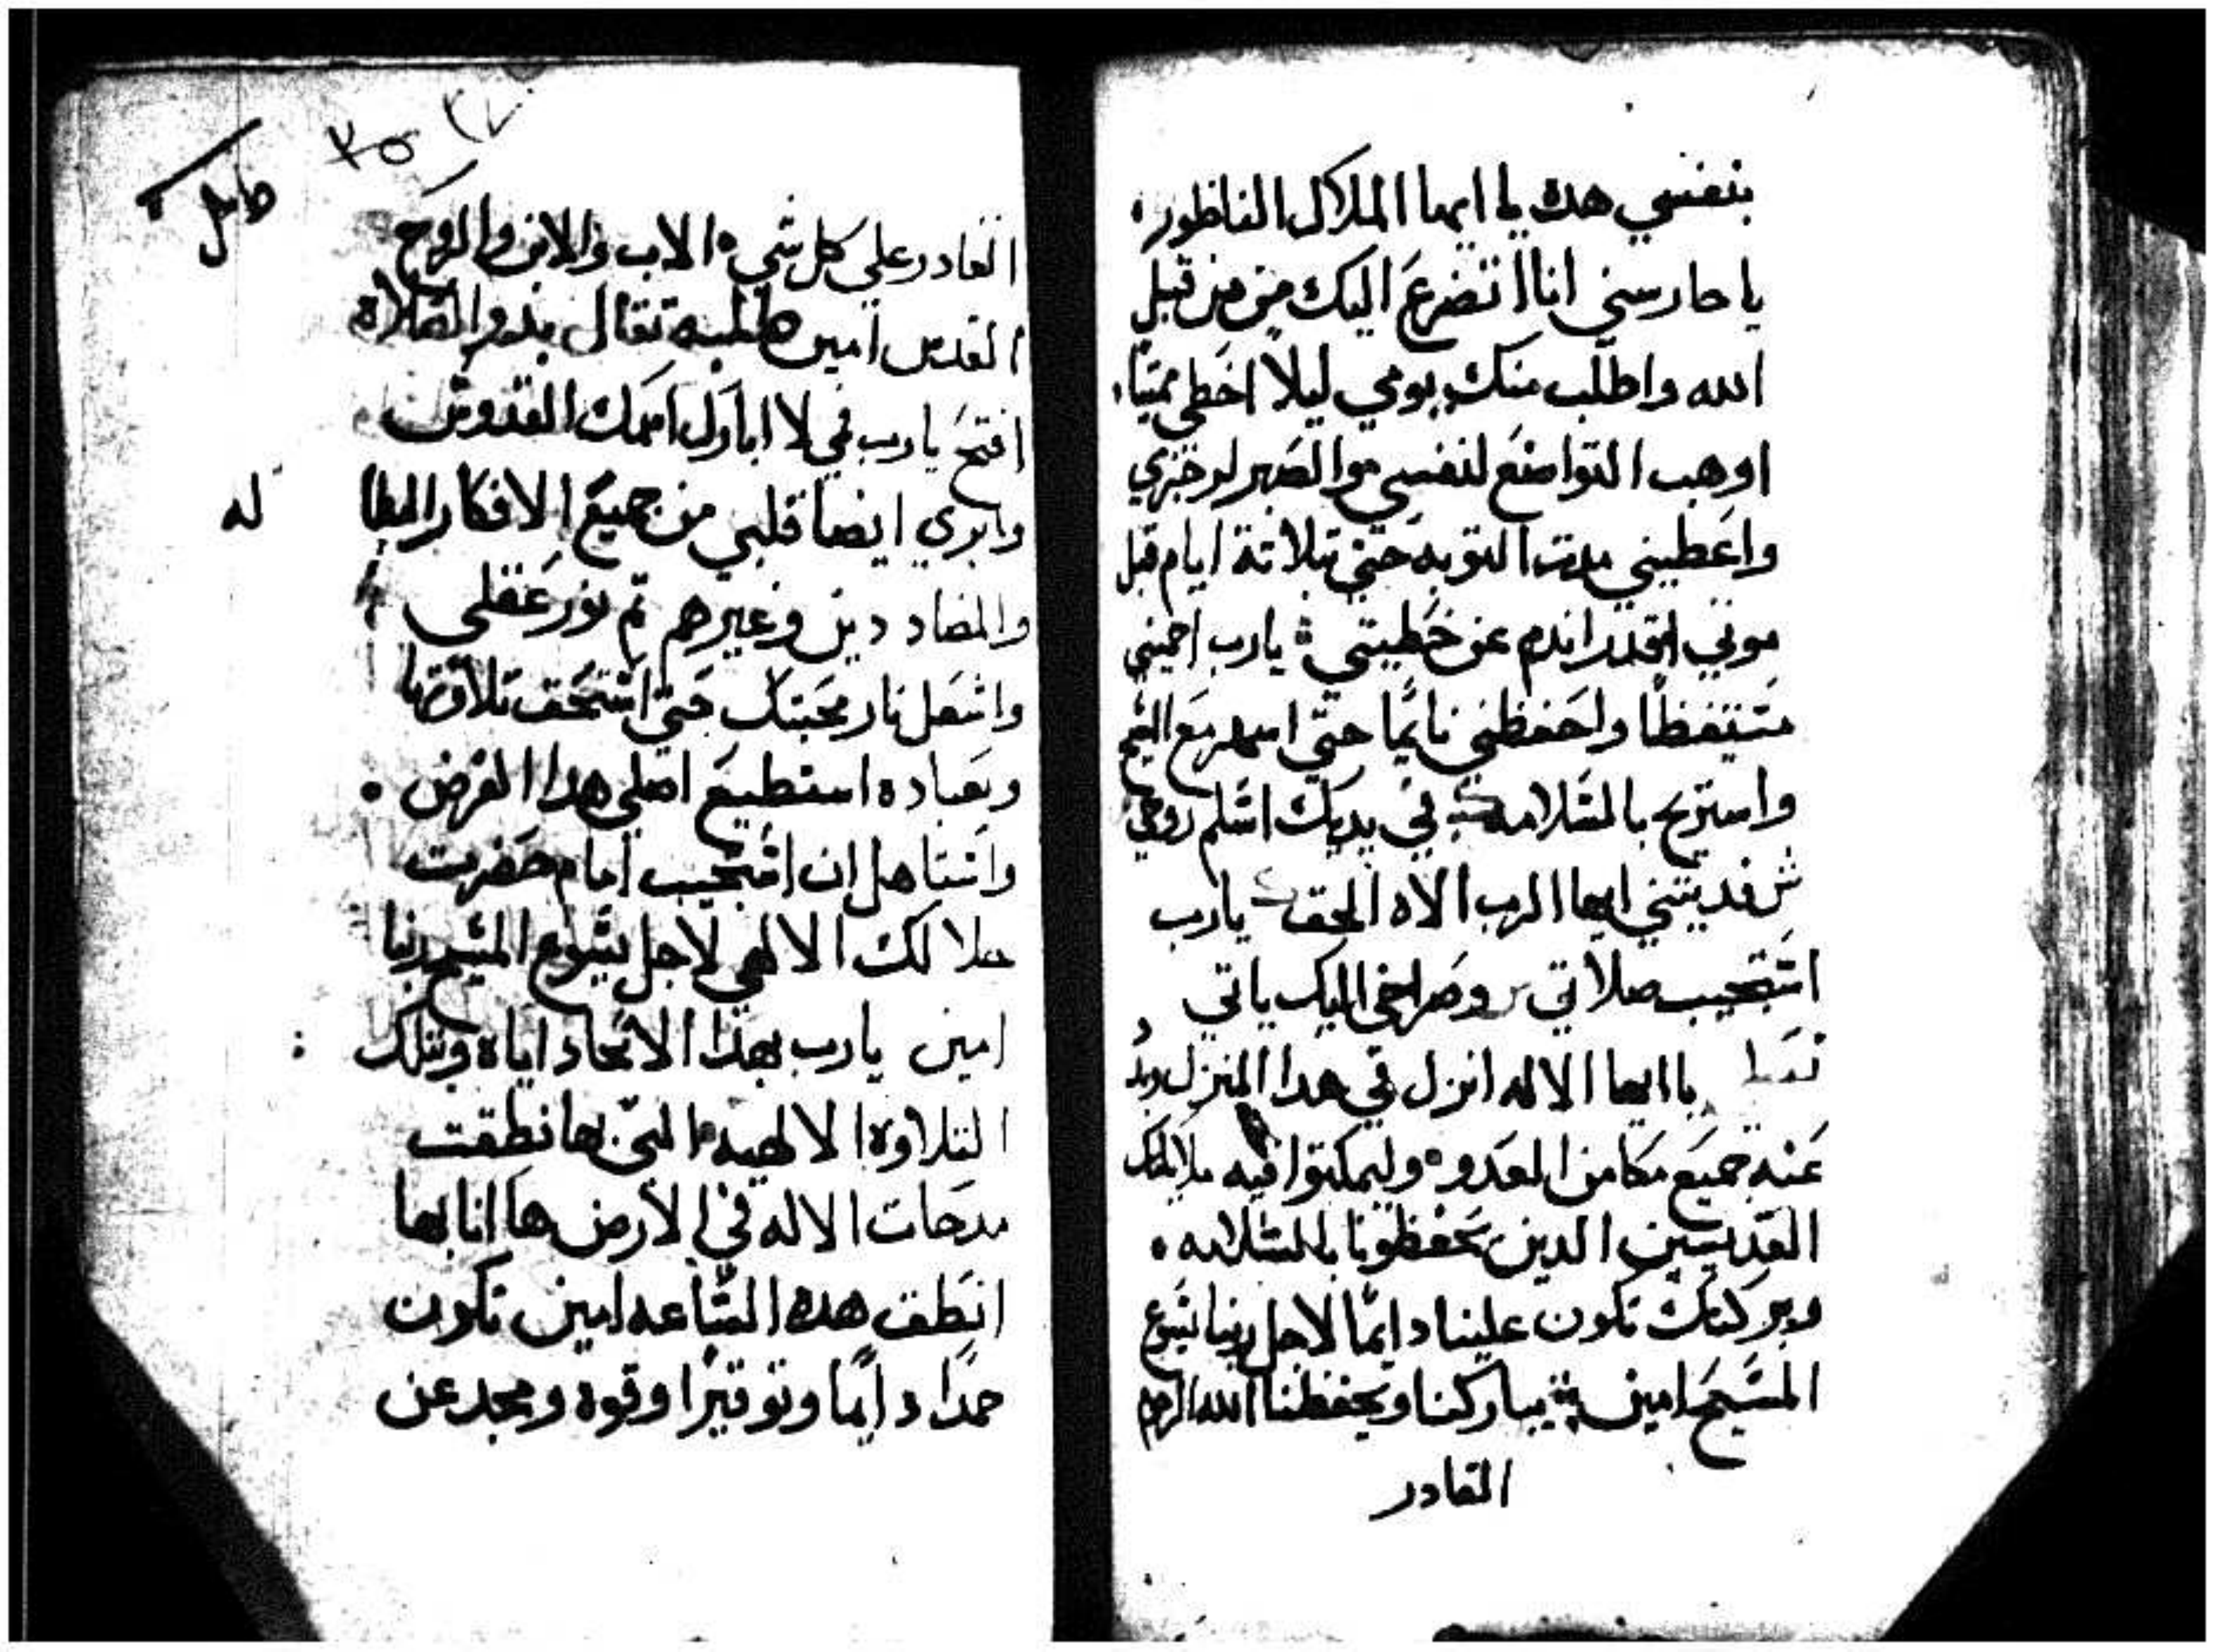 بنفسي هده يا ايها الملاك الناظور
يا حارسني انا اتضرع اليك من من قبل
الله واطلب منك يومي ليلا اخطي مميتا
اوهب التواضع لنفسي والصبر
واعطيني مدت التوبه حتي تلاتة ايام قبل
موتي اندم عن خطيتي يارب احميني
متيقظا واحفظني نايما حتي اسهر مع المسيح
واستريح بالسلامه في يديك اسلم روحي
ش فديتني ايها الرب الاه الحق يارب
استجيب صلاتي ر وصراخي اليك ياتي
يا ايها الاله انزل في هدا المنزل
عنه جميع مكامن العدو وليمكتوا فيه ملايكتك
القديسين الدين يحفظونا بالسلامه
وبركتك تكون علينا دايما لاجل ربنا يسوع
المسيح امين يباركنا ويحفظنا الله الرحوم
القادر
القادر علي كل شي الاب والابن والروح
القدس امين طلبه تقال بدو الصلاة
افتح يارب في لا ابارك اسمك القدوس
وابري ايضا قلبي من جميع الافكار البطا
له
والمضاددين وغيرهم تم نور عقلي
واشعل نار محبتك حتي استحق تلاوة
وبعباده استطيع اصلي هدا الفرض
واستاهل ان استجيب امام حضرت
جلالك الالهي لاجل يسوع المسيح ربنا
امين يارب بهدا الاتحاد اياه وبتلك
التلاوة الالهيه التي بها نطقت
مدحات الاله في الارض ها انا بها
انطق هده الساعه امين تكون
حمدا دايما وتوقيرا وقوه ومجد عن